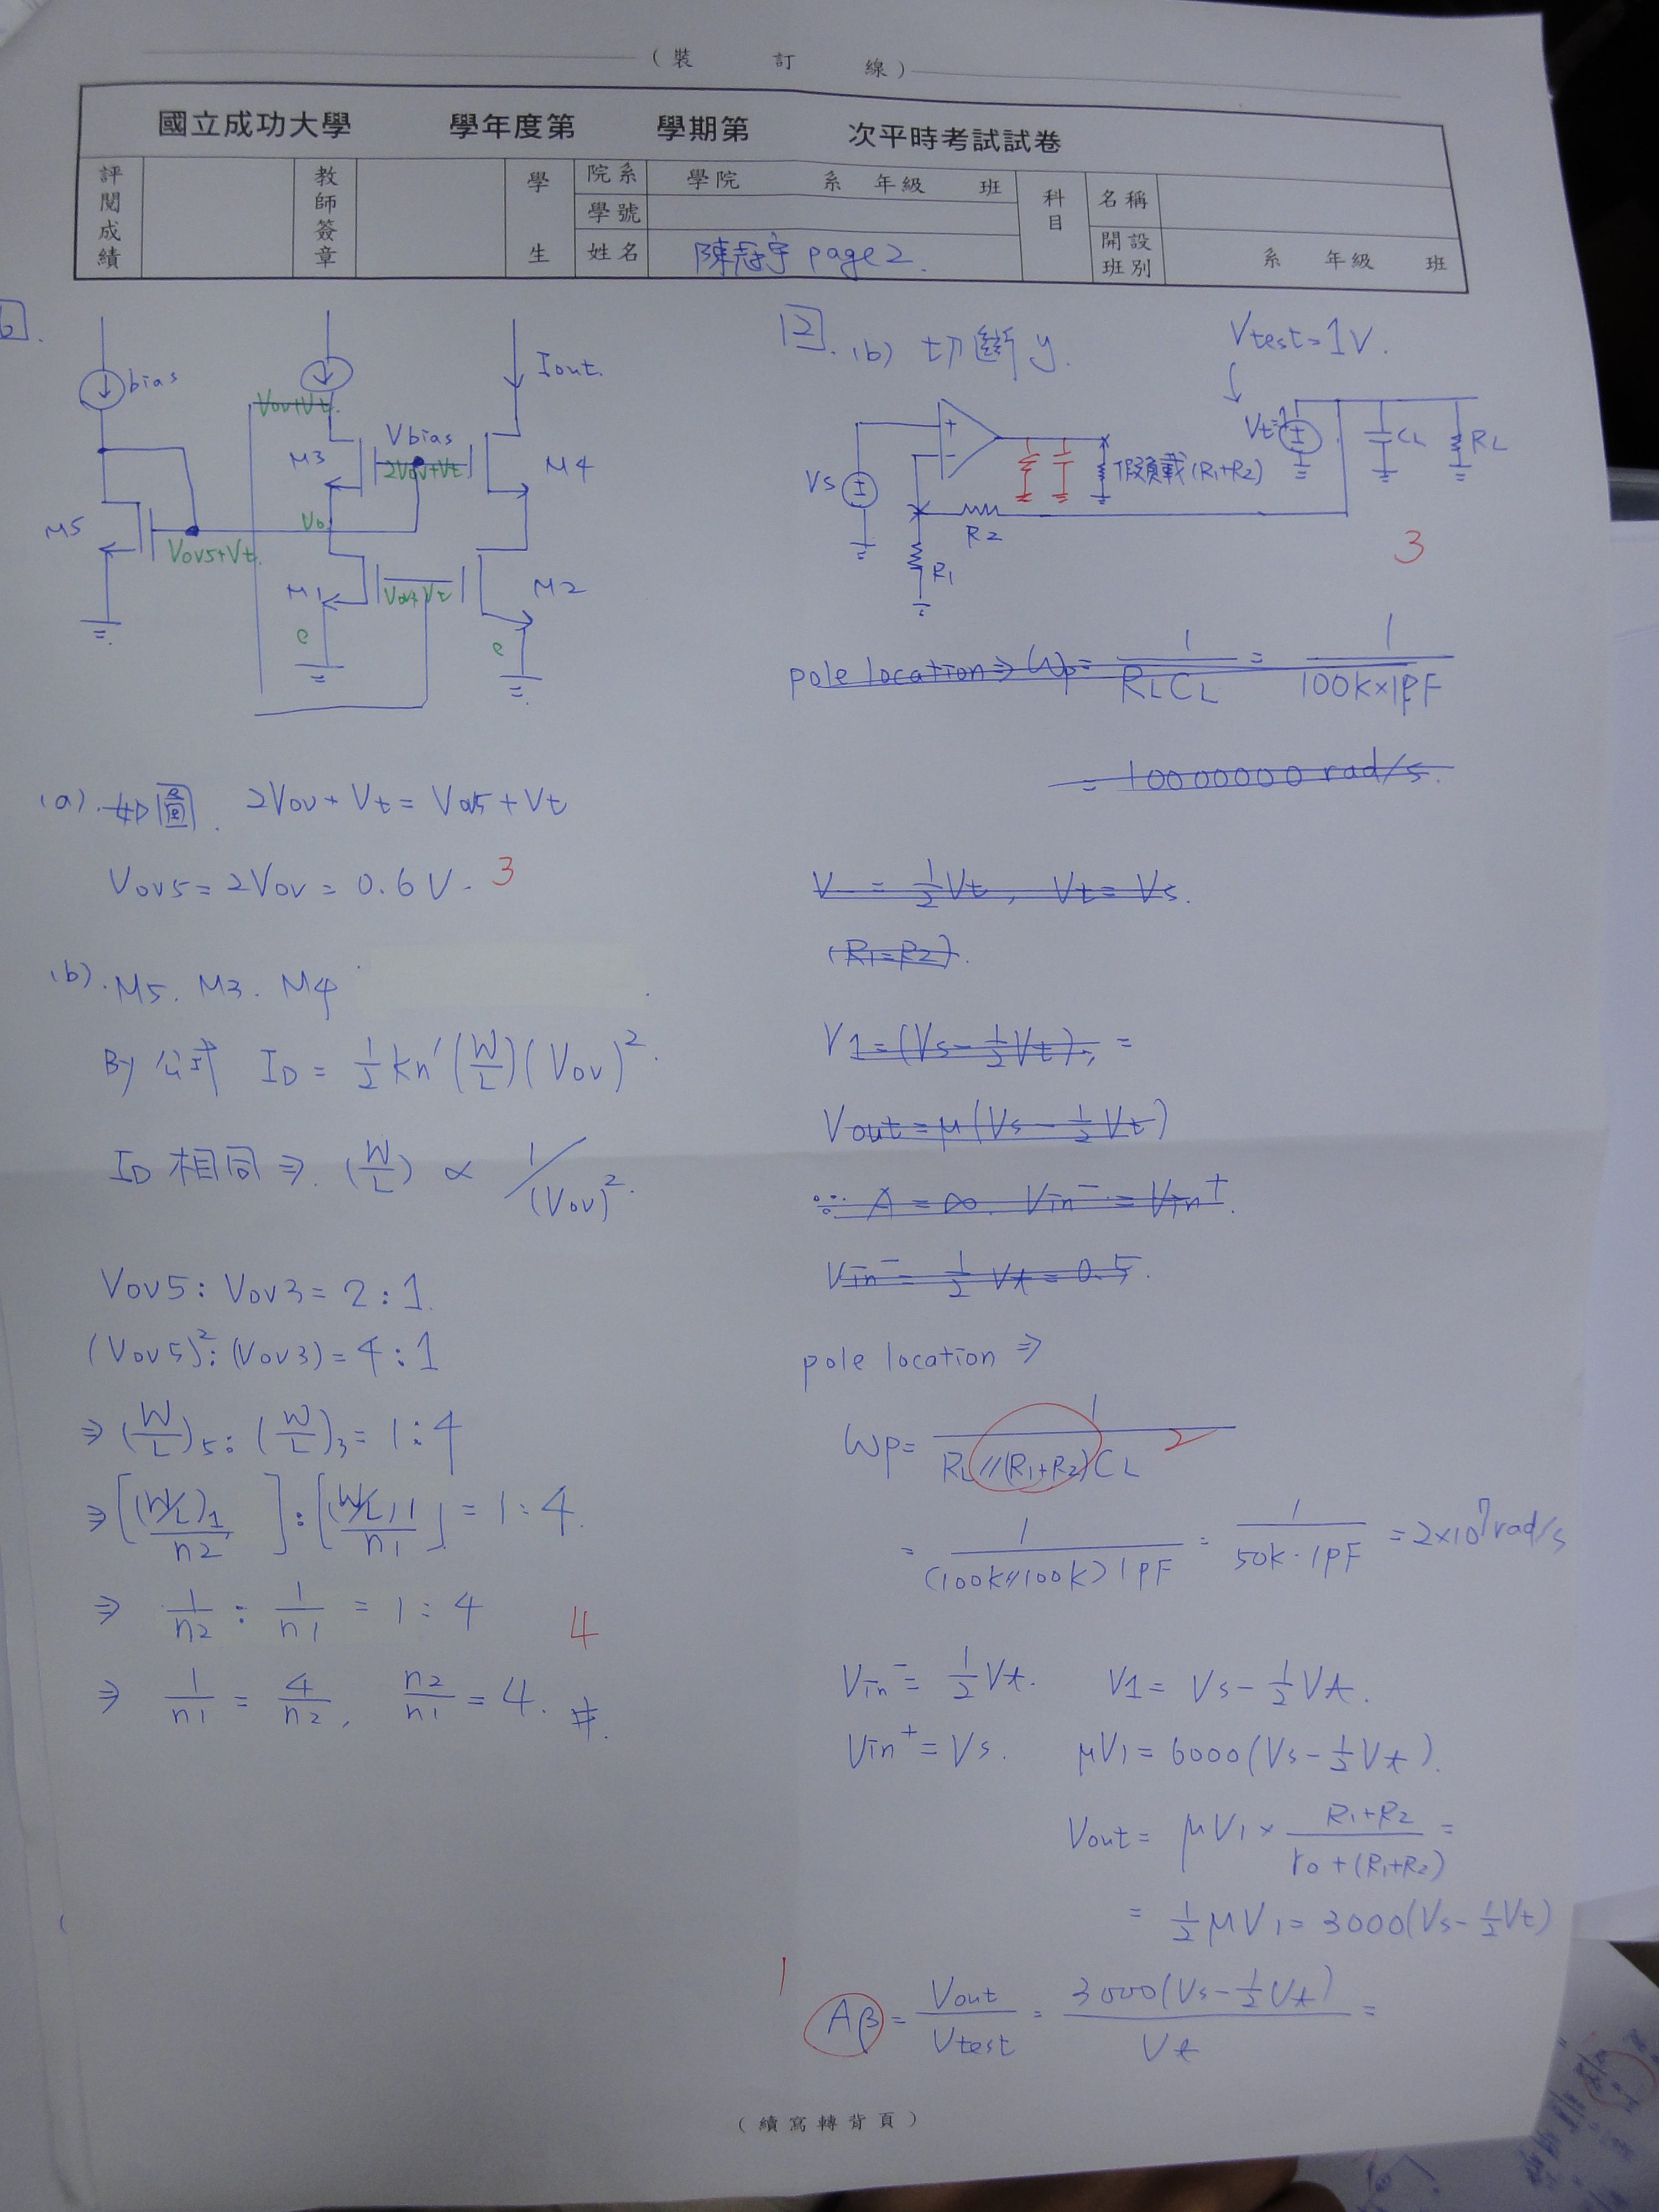 (裝 訂 線)
國立成功大學 學年度第 學期第 次平時考試試卷
評閱成績 教師簽章 學生 院系 學院 系 年級 班 科目 名稱
學號
姓名 陳冠宇 page 2. 開設班別 系 年級 班
6.
bias
Iout.
Vov+Vt.
M3
Vbias
2Vov+Vt
M4
Vo
M5
Vov5+Vt.
M1
Vov+Vt
M2
(a). 如圖. 2Vov + Vt = Vov5 + Vt
Vov5 = 2Vov = 0.6V. 3
(b). M5. M3. M4
By 公式 ID = 1/2 kn' (W/L)(Vov)².
ID 相同 ⇒. (W/L) ∝ 1/(Vov)².
Vov5 : Vov3 = 2 : 1.
(Vov5)² : (Vov3) = 4 : 1
⇒ (W/L)5 : (W/L)3 = 1 : 4
⇒ [(W/L)1/n2] : [(W/L)1/n1] = 1 : 4.
⇒ 1/n2 : 1/n1 = 1 : 4
4
⇒ 1/n1 = 4/n2, n2/n1 = 4. #.
2. (b) 切斷y.
Vtest = 1V.
Vs
假負載(R1+R2)
CL
RL
R2
R1
3
pole location ⇒ Wp = 1/(RLCL) = 1/(100K×1PF)
= 10000000 rad/s.
V = 1/2 Vt, Vt = Vs.
(R1=R2).
V1 = (Vs - 1/2 Vt), =
Vout = μ(Vs - 1/2 Vt)
∵ A = ∞. Vin⁻ = Vin⁺.
Vin⁻ = 1/2 Vt = 0.5.
pole location ⇒
Wp = 1/(RL//(R1+R2)CL) 2
= 1/((100K//100K)1PF) = 1/(50K·1PF) = 2×10⁷ rad/s
Vin⁻ = 1/2 Vt. V1 = Vs - 1/2 Vt.
Vin⁺ = Vs. μV1 = 6000(Vs - 1/2 Vt).
Vout = μV1 × (R1+R2)/(ro+(R1+R2)) =
= 1/2 μV1 = 3000(Vs - 1/2 Vt)
1
Aβ = Vout/Vtest = 3000(Vs - 1/2 Vt)/Vt =
(續寫轉背頁)